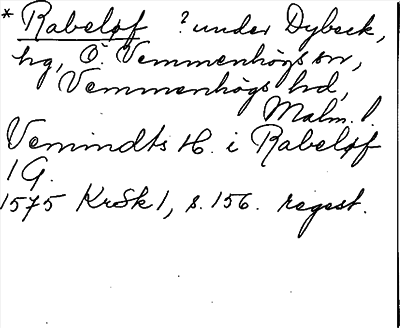 * Rabeløf ? under Dybeck,
hg, Ö. Vemmenhögs sn,
Vemmenhögs hd,
Malm. l.
Vemindts H. i Rabeløf
1 G.
1575 KrSk 1, s. 156. regest.